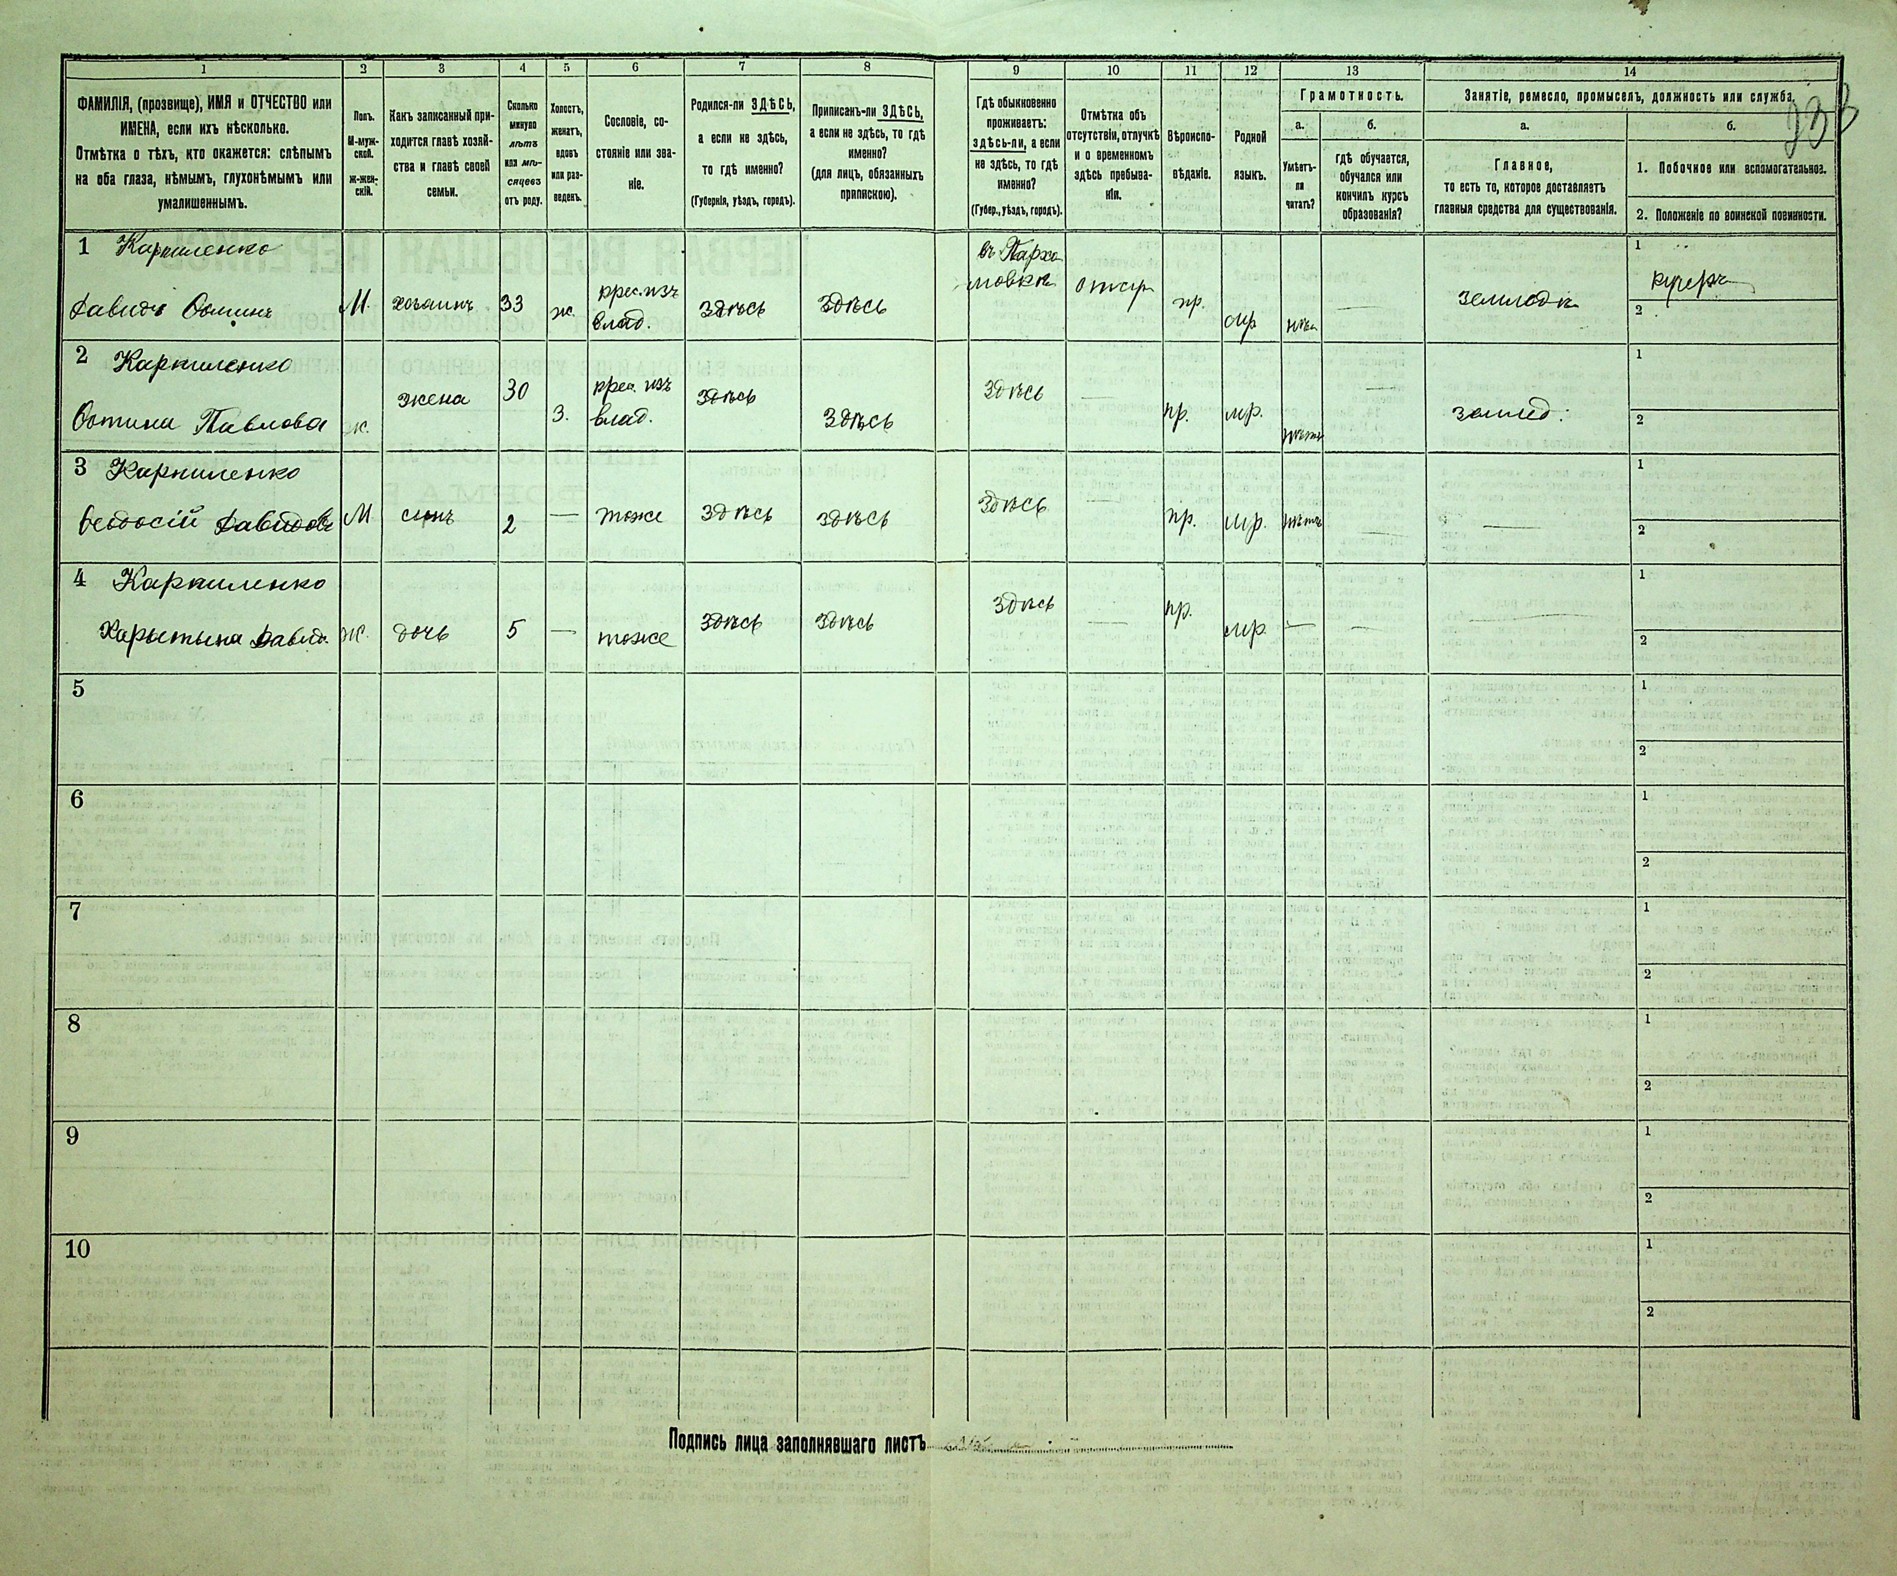 1 2 3 4 5 6 7 8 9 10 11 12 13 14
ФАМИЛІЯ, (прозвище), ИМЯ и ОТЧЕСТВО или
ИМЕНА, если ихъ нѣсколько.
Отмѣтка о тѣхъ, кто окажется: слѣпымъ
на оба глаза, нѣмымъ, глухонѣмымъ или
умалишеннымъ.
Полъ.
М-муж-
ской.
ж-жен-
скій.
Какъ записанный при-
ходится главѣ хозяй-
ства и главѣ своей
семьи.
Сколько
минуло
лѣтъ
или мѣ-
сяцевъ
отъ роду.
Холостъ,
женатъ,
вдовъ
или раз-
веденъ.
Сословіе, со-
стояніе или зва-
ніе.
Родился-ли ЗДѢСЬ,
а если не здѣсь,
то гдѣ именно?
(Губернія, уѣздъ, городъ).
Приписанъ-ли ЗДѢСЬ,
а если не здѣсь, то гдѣ
именно?
(для лицъ, обязанныхъ
припискою).
Гдѣ обыкновенно
проживаетъ:
здѣсь-ли, а если
не здѣсь, то гдѣ
именно?
(Губер., уѣздъ, городъ).
Отмѣтка объ
отсутствіи, отлучкѣ
и о временномъ
здѣсь пребыва-
ніи.
Вѣроиспо-
вѣданіе.
Родной
языкъ.
Грамотность.
а.
Умѣетъ-
ли
читать?
б.
гдѣ обучается,
обучался или
кончилъ курсъ
образованія?
Занятіе, ремесло, промыселъ, должность или служба.
а.
Главное,
то есть то, которое доставляетъ
главныя средства для существованія.
б.
1. Побочное или вспомогательное.
2. Положеніе по воинской повинности.
1 Карпиленко
Давидъ М. хозаинъ 33 ж. крес. изъ
влад. здѣсь здѣсь въ Пархо
мовкѣ отсут пр. мр нѣтъ — землед кучеръ
1
2
2 Карпиленко
Павлова ж. жена 30 з. крес. изъ
влад. здѣсь здѣсь здѣсь — пр. мр. нѣтъ — землед:
1
2
3 Карпиленко
Ѳеодосій Давидовъ М сынъ 2 — тоже здѣсь здѣсь здѣсь — пр. мр. нѣтъ — —
1
2
4 Карпиленко
Харытына Давид. ж. дочь 5 — тоже здѣсь здѣсь здѣсь — пр. мр. — — —
1
2
5
1
2
6
1
2
7
1
2
8
1
2
9
1
2
10
1
2
Подпись лица заполнявшаго листъ